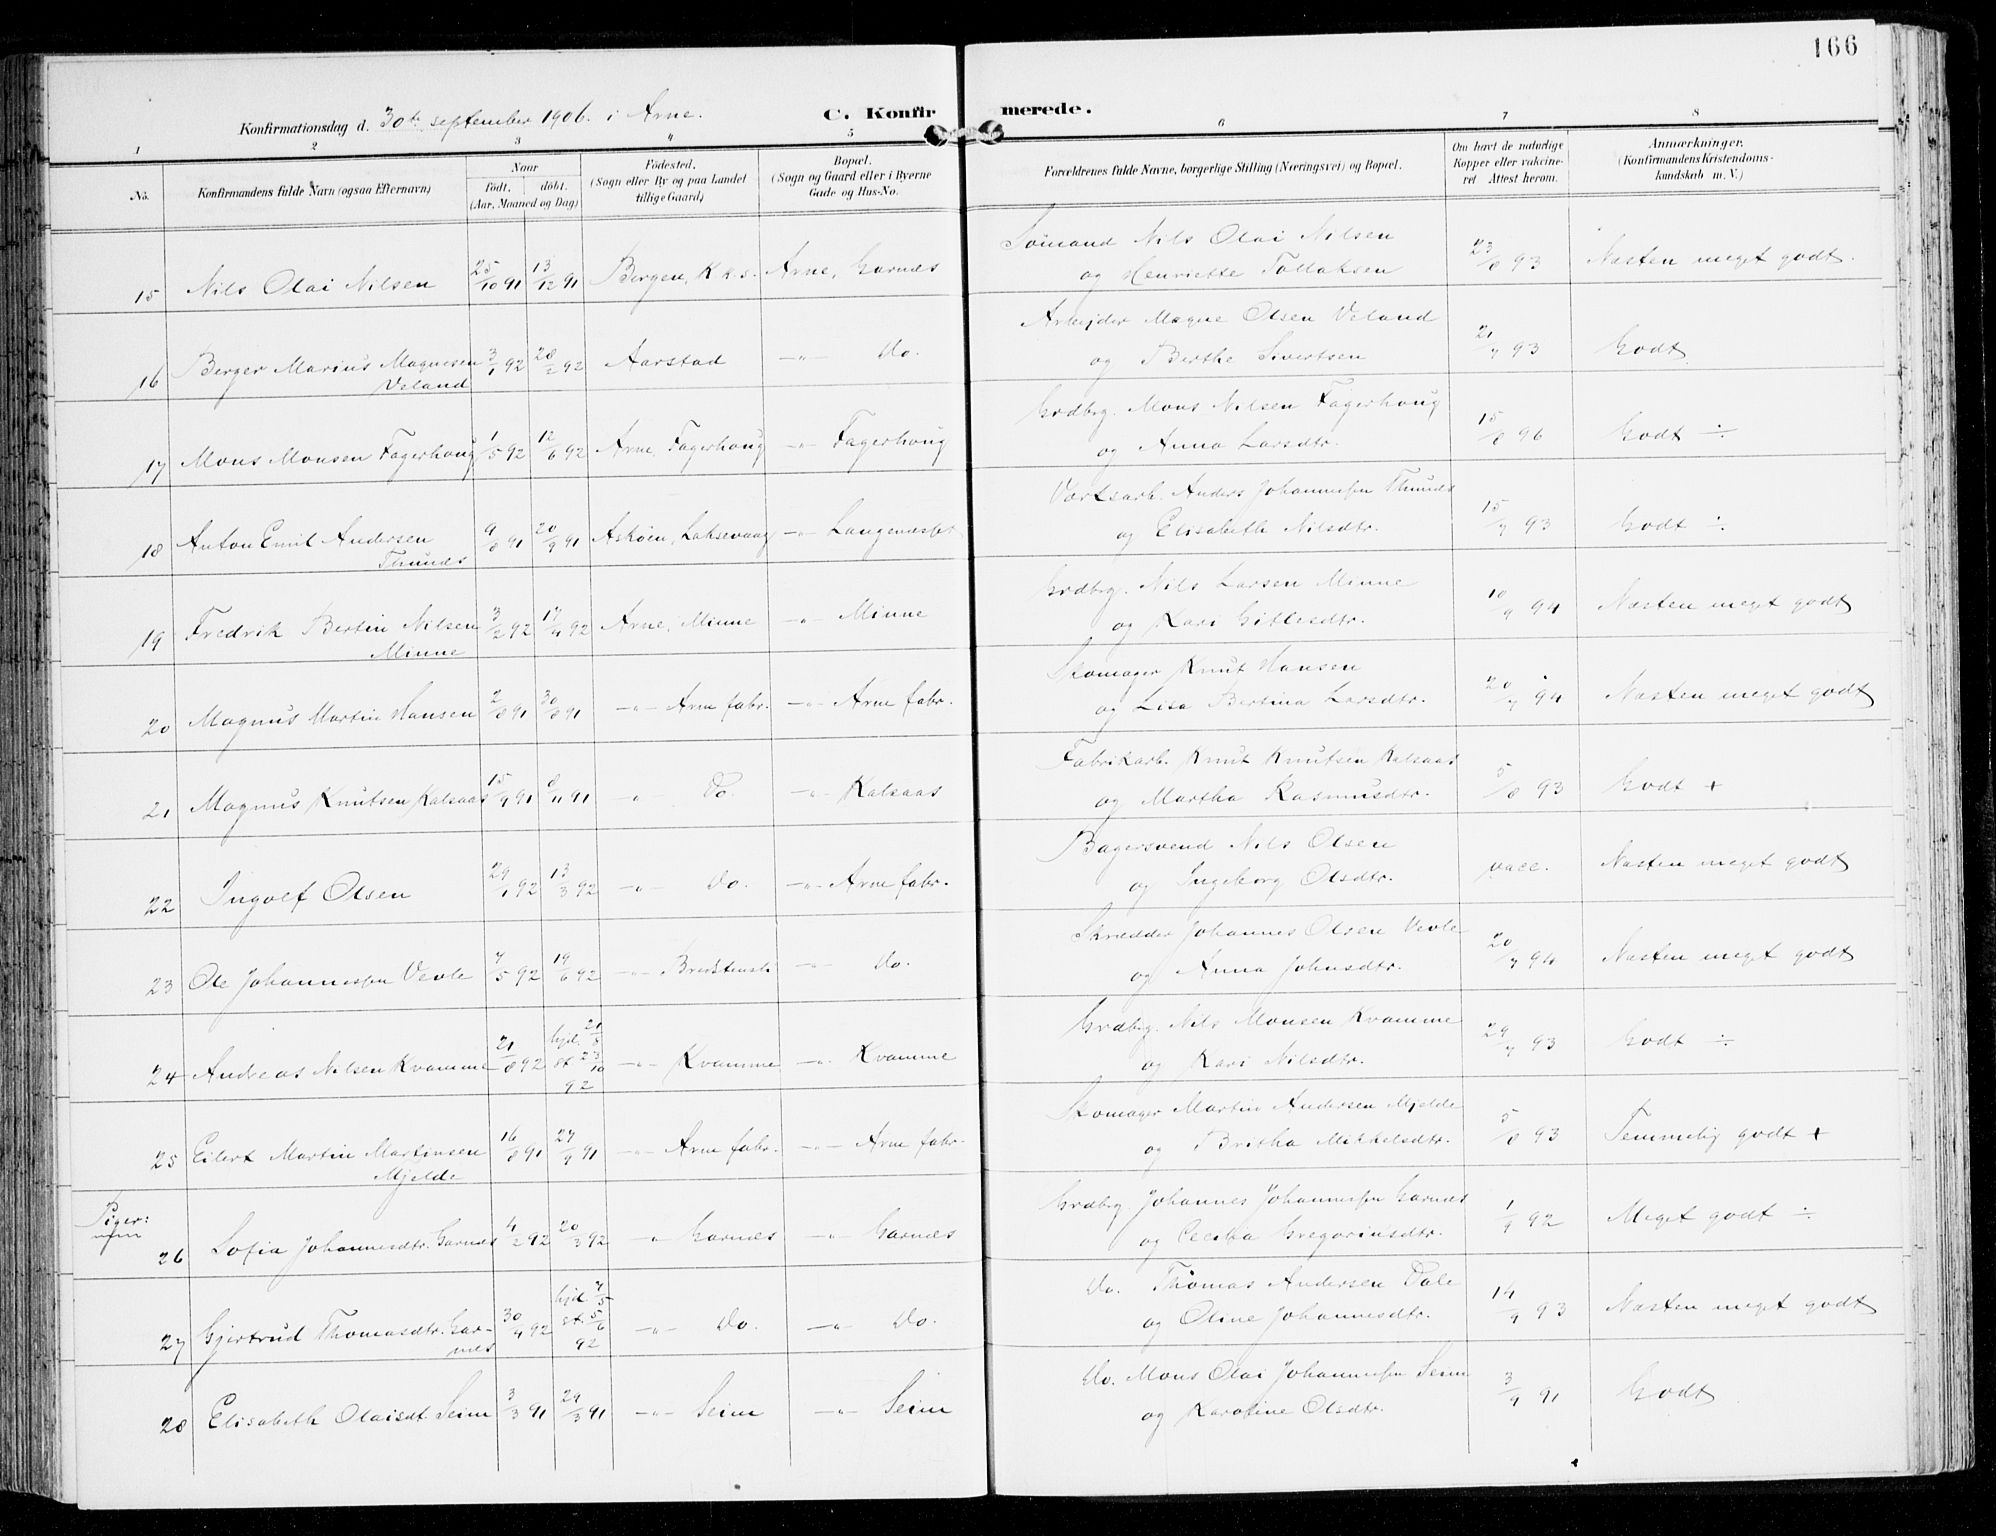 166
Konfirmationsdag d. 30te september 1906. i Arne. C. Konfirmerede.
1 2 3 4 5 6 7 8
No. Konfirmandens fulde Navn (ogsaa Efternavn) Naar født, døbt. (Aar, Maaned og Dag) Fødested. (Sogn eller By og paa Landet tillige Gaard) Bopæl. (Sogn og Gaard eller i Byerne Gade og Hus-No. Forældrenes fulde Navne, borgerlige Stilling (Næringsvei) og Bopæl. Om havt de naturlige Kopper eller vakcineret Attest herom. Anmærkninger. (Konfirmandens Kristendomskundskab m. V.)
15 Nils Olai Nilsen 25/10 91 13/12 91 Bergen, K.k.s. Arne, Garnæs Sömand Nils Olai Nilsen
og Henriette Tollaksen 23/8 93 Næsten meget godt.
16 Berger Marius Magnesen 3/1 92 28/2 92 Aarstad -"- Do. Arbejder Magne Olsen Veland
Veland og Berthe Sivertsen 21/7 93 Godt
17 Mons Monsen Fagerhoug 1/5 92 12/6 92 Arne, Fagerhoug -"- Fagerhoug Grdbrg. Mons Nilsen Fagerhoug
og Anna Larsdtr. 15/8 96 Godt ÷
18 Anton Emil Andersen 9/8 91 20/9 91 Asköen, Laksevaag -"- Langenæs Værtsarb. Anders Johannessen Thunæs
Thunæs og Elisabeth Nilsdtr. 15/7 93 Godt ÷
19 Fredrik Bertin Nilsen 3/2 92 17/4 92 Arne, Minne -"- Minne Grdbrg. Nils Larsen Minne
Minne og Kari Gitlesdtr. 10/9 94 Næsten meget godt
20 Magnus Martin Hansen 2/8 91 30/8 91 -"- Arne fabr. -"- Arne fabr. Skomager Knut Hansen
og Lisa Bertina Larsdtr. 20/7 94 Næsten meget godt
21 Magnus Knutsen Kalsaas 15/9 91 8/11 91 -"- Do. -"- Kalsaas Fabrikarb. Knut Knutsen Kalsaas
og Martha Rasmusdtr. 5/8 93 Godt +
22 Ingolf Olsen 29/1 92 13/3 92 -"- Do. -"- Arne fabr. Bagersvend Nils Olsen
og Ingeborg Olsdtr. vacc. Næsten meget godt
23 Ole Johannessen Vevle 7/5 92 19/6 92 -"- -"- Do. Skrædder Johannes Olsen Vevle
og Anna Johnsdtr. 20/7 94 Næsten meget godt
24 Andreas Nilsen Kvamme 21/8 92 hjd. 21/8 st. 23/10 92 -"- Kvamme -"- Kvamme Grdbrg. Nils Monsen Kvamme
og Kari Nilsdtr. 24/7 93 Godt ÷
25 Eilert Martin Martinsen 16/8 91 27/9 91 -"- Arne fabr. -"- Arne fabr. Skomager Martin Andersen Mjelde
Mjelde og Britha Mikkelsdtr. 5/8 93 Temmelig godt +
Piger:
26 Sofia Johannesdtr. Garnæs 4/2 92 20/3 92 -"- Garnæs -"- Garnæs Grdbrg. Johannes Johannessen Garnæs
og Cecilia Gregoriusdtr. 1/9 92 Meget godt ÷
27 Gjertrud Thomasdtr. Gar- 30/4 92 hjd. 7/5 st. 5/6 92 -"- Do. -"- Do. Do. Thomas Andersen Dale
næs og Oline Johannesdtr. 14/9 93 Næsten meget godt
28 Elisabeth Olaisdt Seim 3/3 91 29/3 91 -"- Seim -"- Seim Do. Mons Olai Johannessen Seim
og Karoline Olsdtr. 3/9 91 Godt